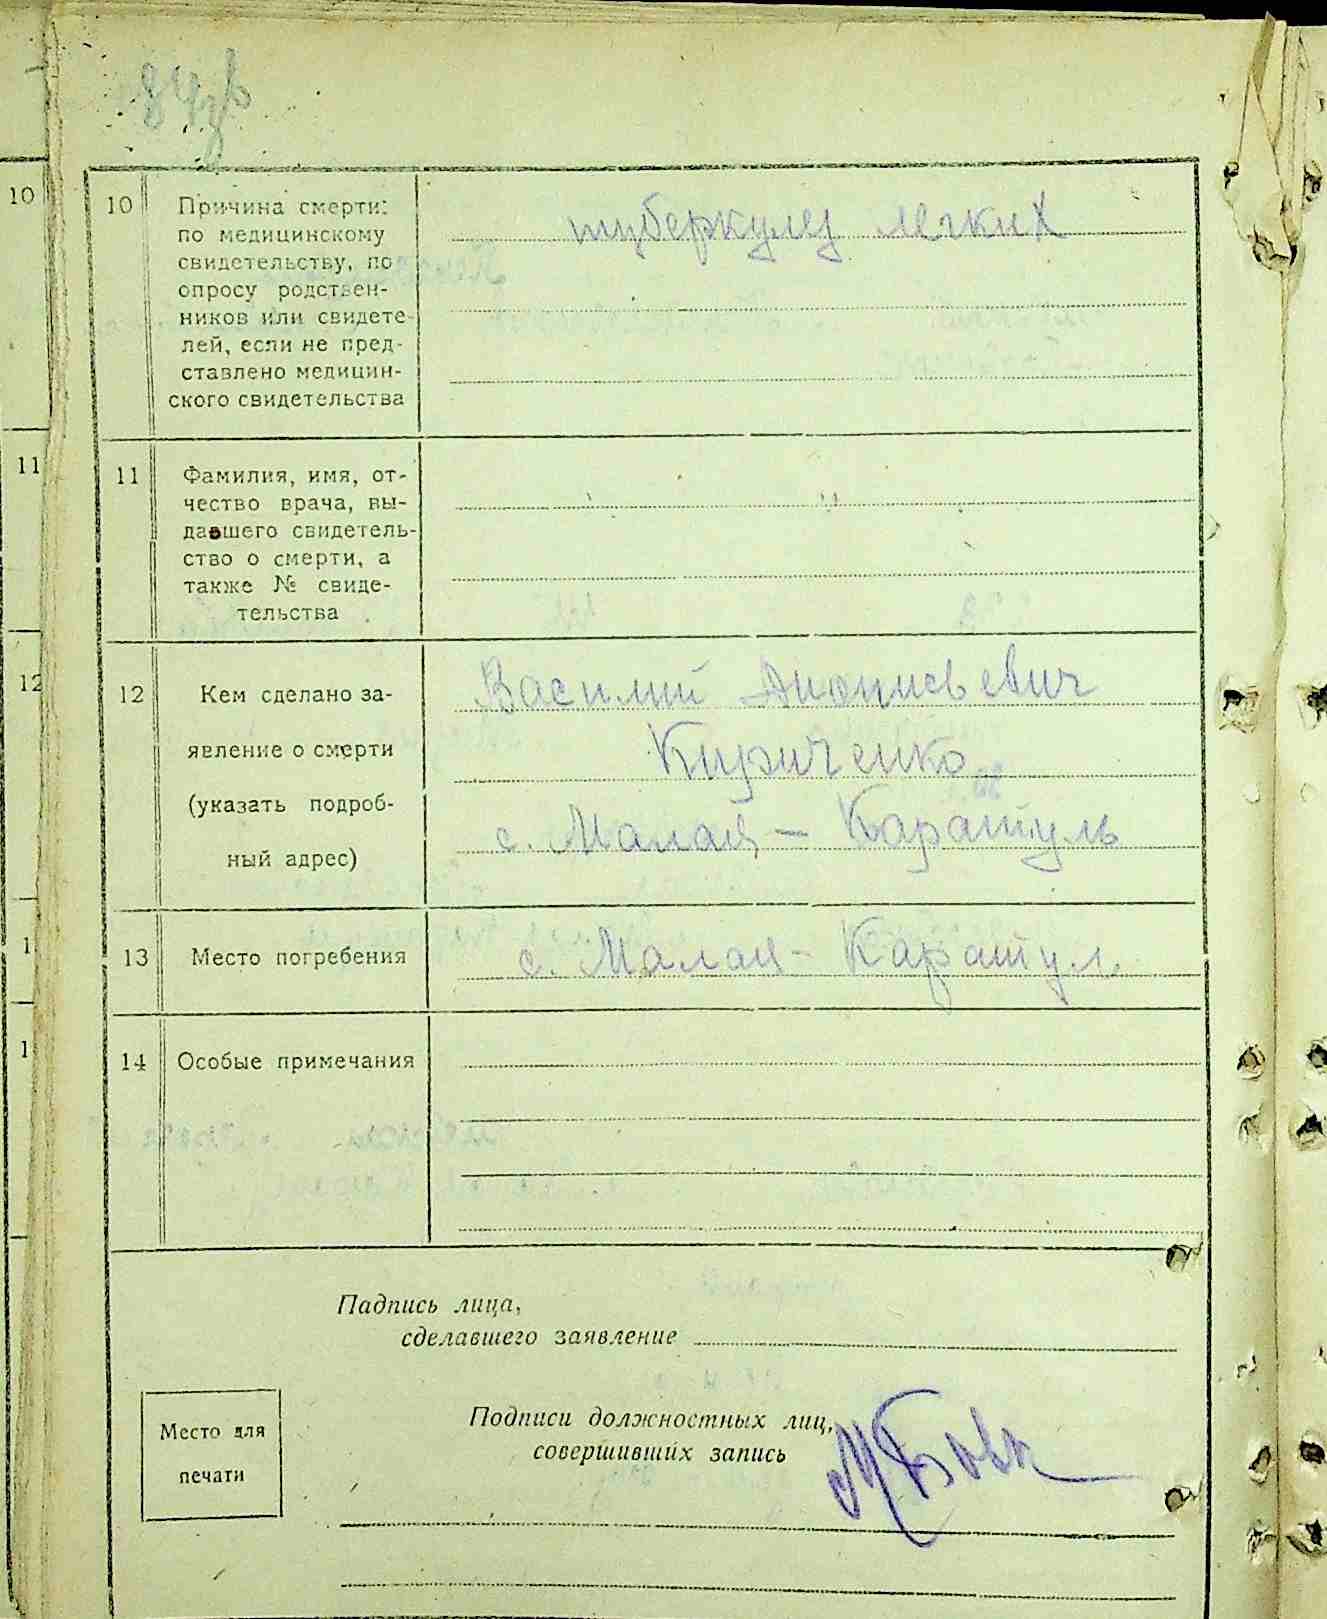 10
Причина смерти:
по медицинскому
свидетельству, по
опросу родствен-
ников или свидете-
лей, если не пред-
ставлено медицин-
ского свидетельства
туберкулез легких
11
Фамилия, имя, от-
чество врача, вы-
давшего свидетель-
ство о смерти, а
также № свиде-
тельства
12
Кем сделано за-
явление о смерти
(указать подроб-
ный адрес)
Василий Дионисьевич
Кириченко
с. Малая - Каратуль
13
Место погребения
с. Малая - Каратул
14
Особые примечания
Падпись лица,
сделавшего заявление
Место для
печати
Подписи должностных лиц,
совершивших запись
10
11
12
1
1